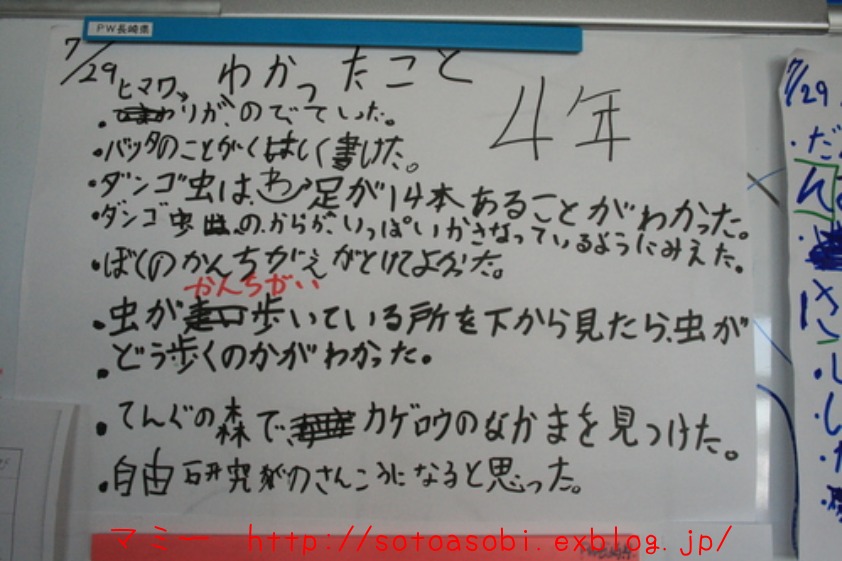 PW長崎県
7/29 わかったこと
4年
ヒマワ
・りが、ので、ていった。
・バッタのことがくはしく書けた。
・ダンゴ虫は、足が14本あることがわかった。
・ダンゴ虫の、からが、いっぱいかさなっているようにみえた。
・ぼくのかんちがえがとけてよかった。
かんちがい
・虫が歩いている所を下から見たら、虫が
・どう歩くのかがわかった。
・てんぐの森で、カゲロウのなかまを見つけた。
・自由研究のさんこうになると思った。
7/29
・だ
ん
マミー http://sotoasobi.exblog.jp/